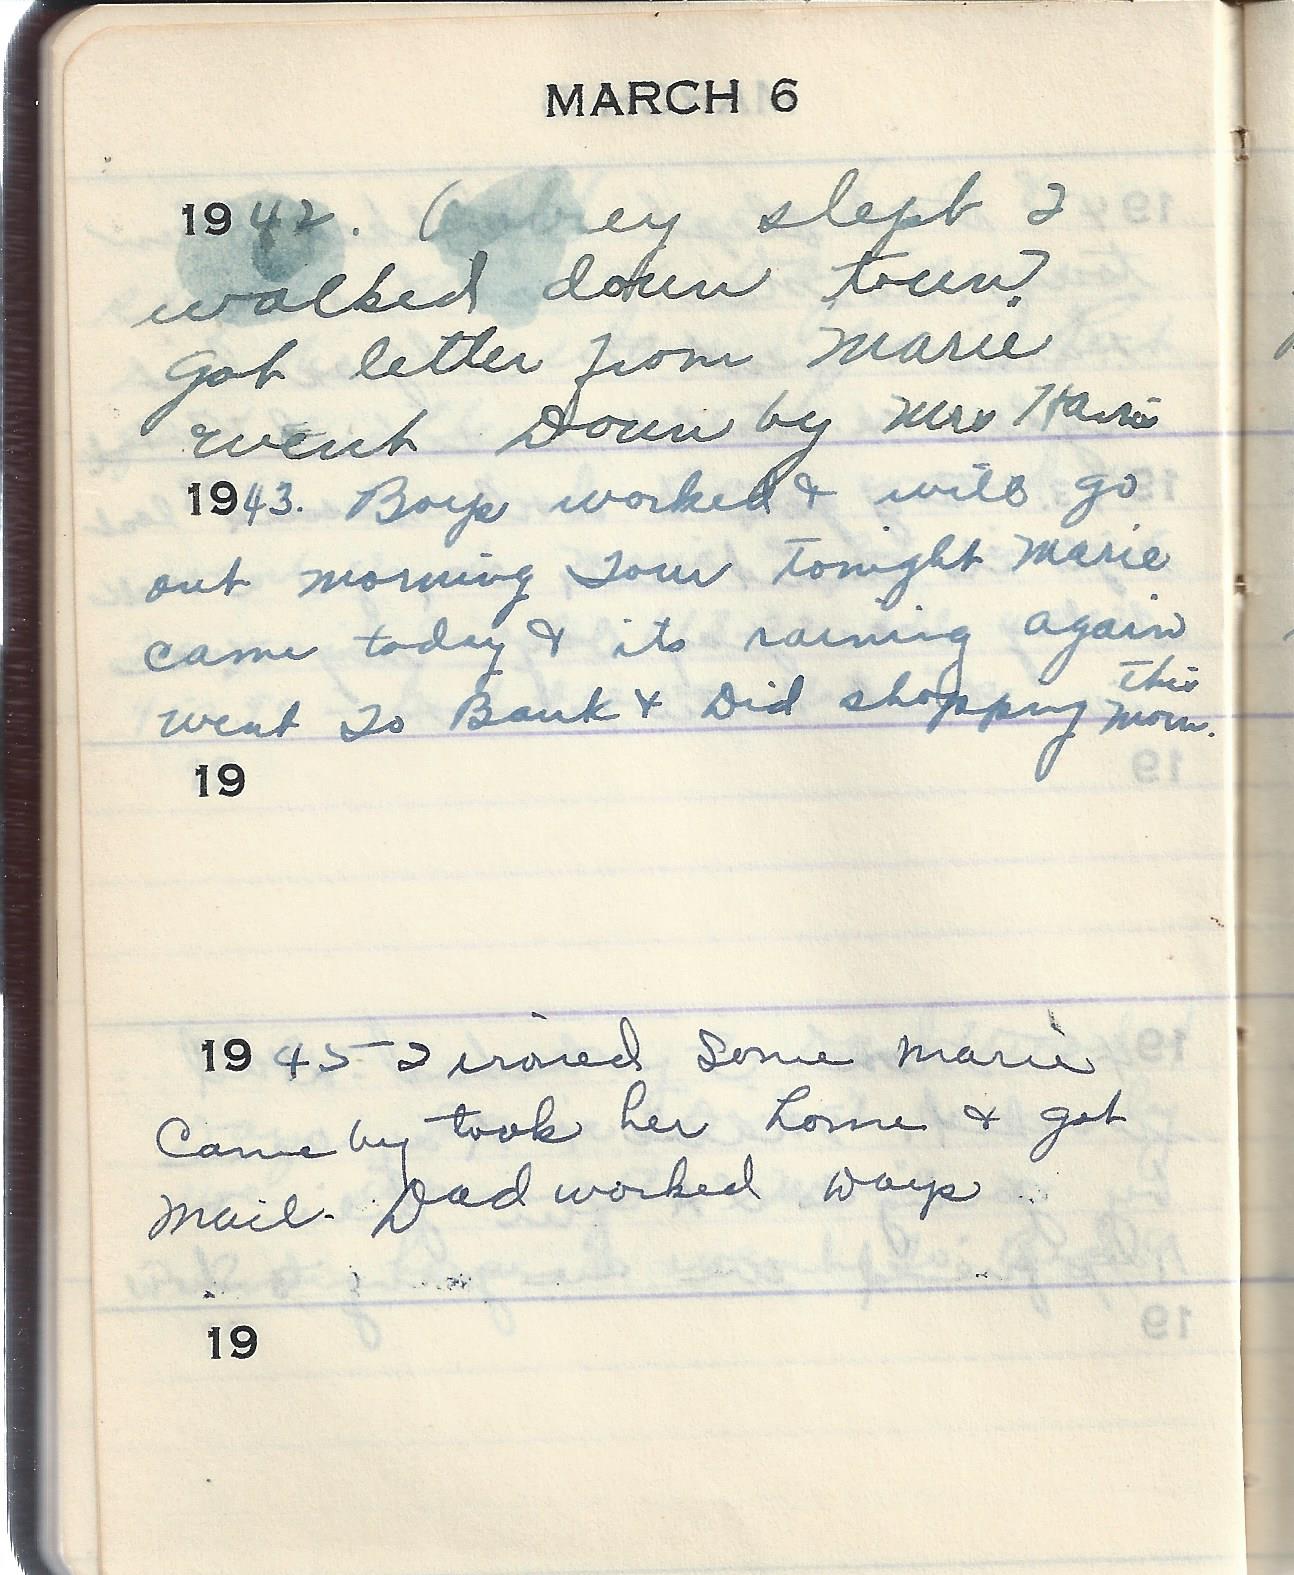 MARCH 6
1942. Aubrey slept I
walked down town?
Got letter from Marie
went Down by Mrs Harris
1943. Boys worked & will go
out morning Tour tonight Marie
came today & its raining again
went To Bank & Did shopping this morn.
19
1945 I ironed Some Marie
Came by took her home & got
Mail. Dad worked Days
19